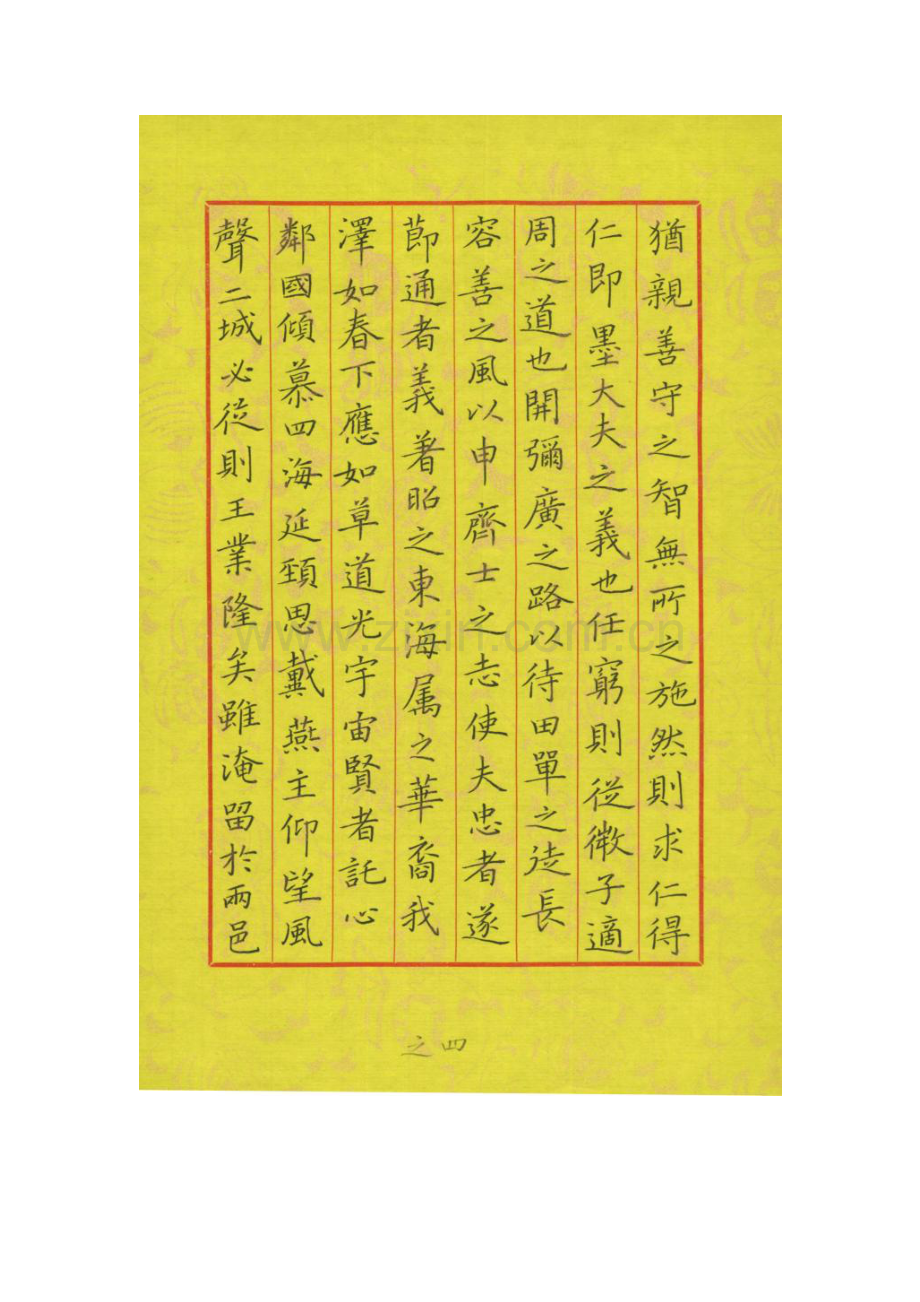 猶親善守之智無所之施然則求仁得
仁即墨大夫之義也任窮則從微子適
周之道也開彌廣之路以待田單之徒長
容善之風以申齊士之志使夫忠者遂
節通者義著昭之東海属之華裔我
澤如春下應如草道光宇宙賢者託心
鄰國傾慕四海延頸思戴燕主仰望風
聲二城必從則王業隆矣雖淹留於兩邑
之四
www.zixin.com.cn